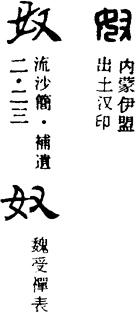 内蒙伊盟
出土汉印
奴
流沙簡·補遺
二·二三
奴
魏受禪表